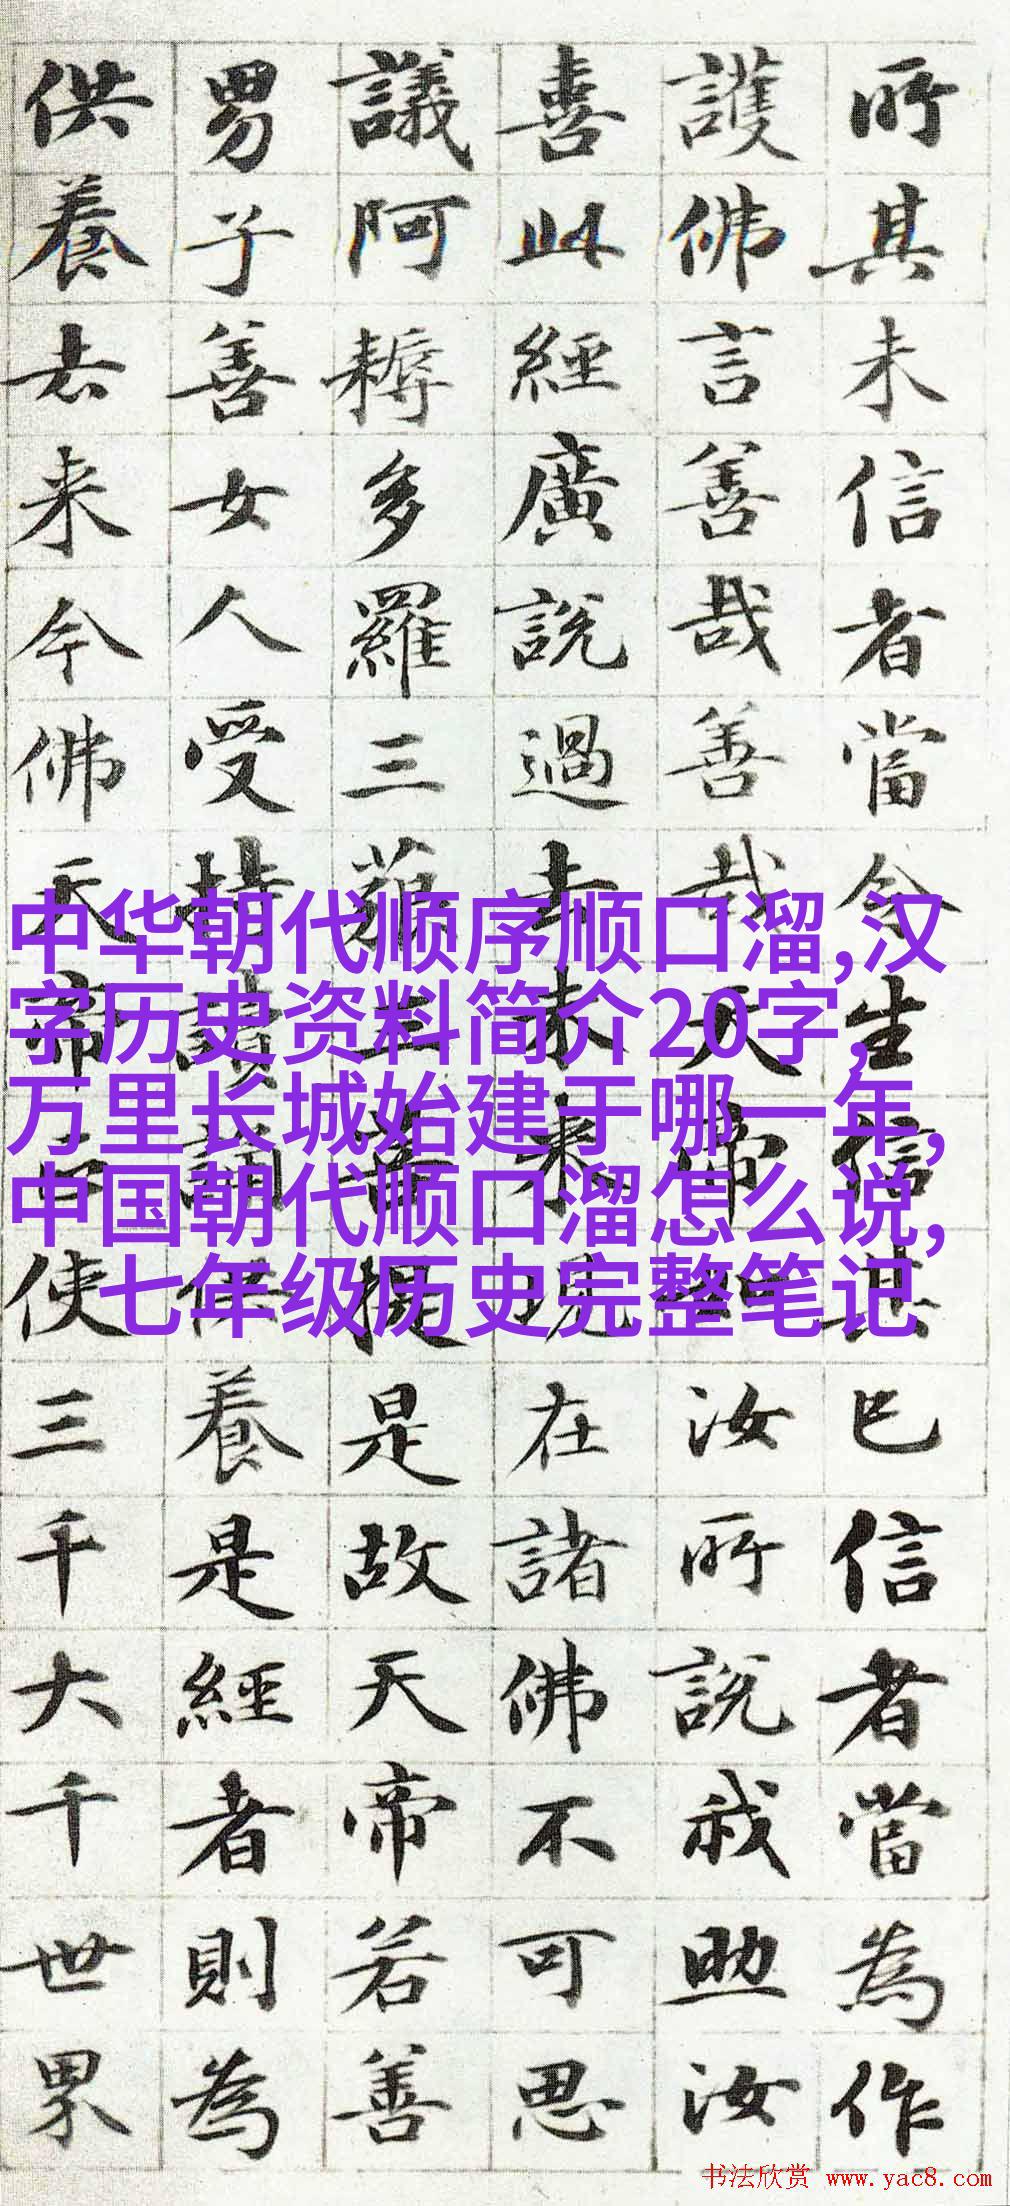 所其未信者當令生信其已信者當為作
護佛言善哉善哉天帝如汝所說我助汝
喜此經廣說過去未来現在諸佛不可思
議阿耨多羅三藐三菩提是故天帝若善
男子善女人受持讀誦供養是經者則為
供養去来今佛天帝正使三千大千世界
中华朝代顺序顺口溜,汉
字历史资料简介20字,
万里长城始建于哪一年,
中国朝代顺口溜怎么说,
七年级历史完整笔记
书法欣赏 www.yac8.com